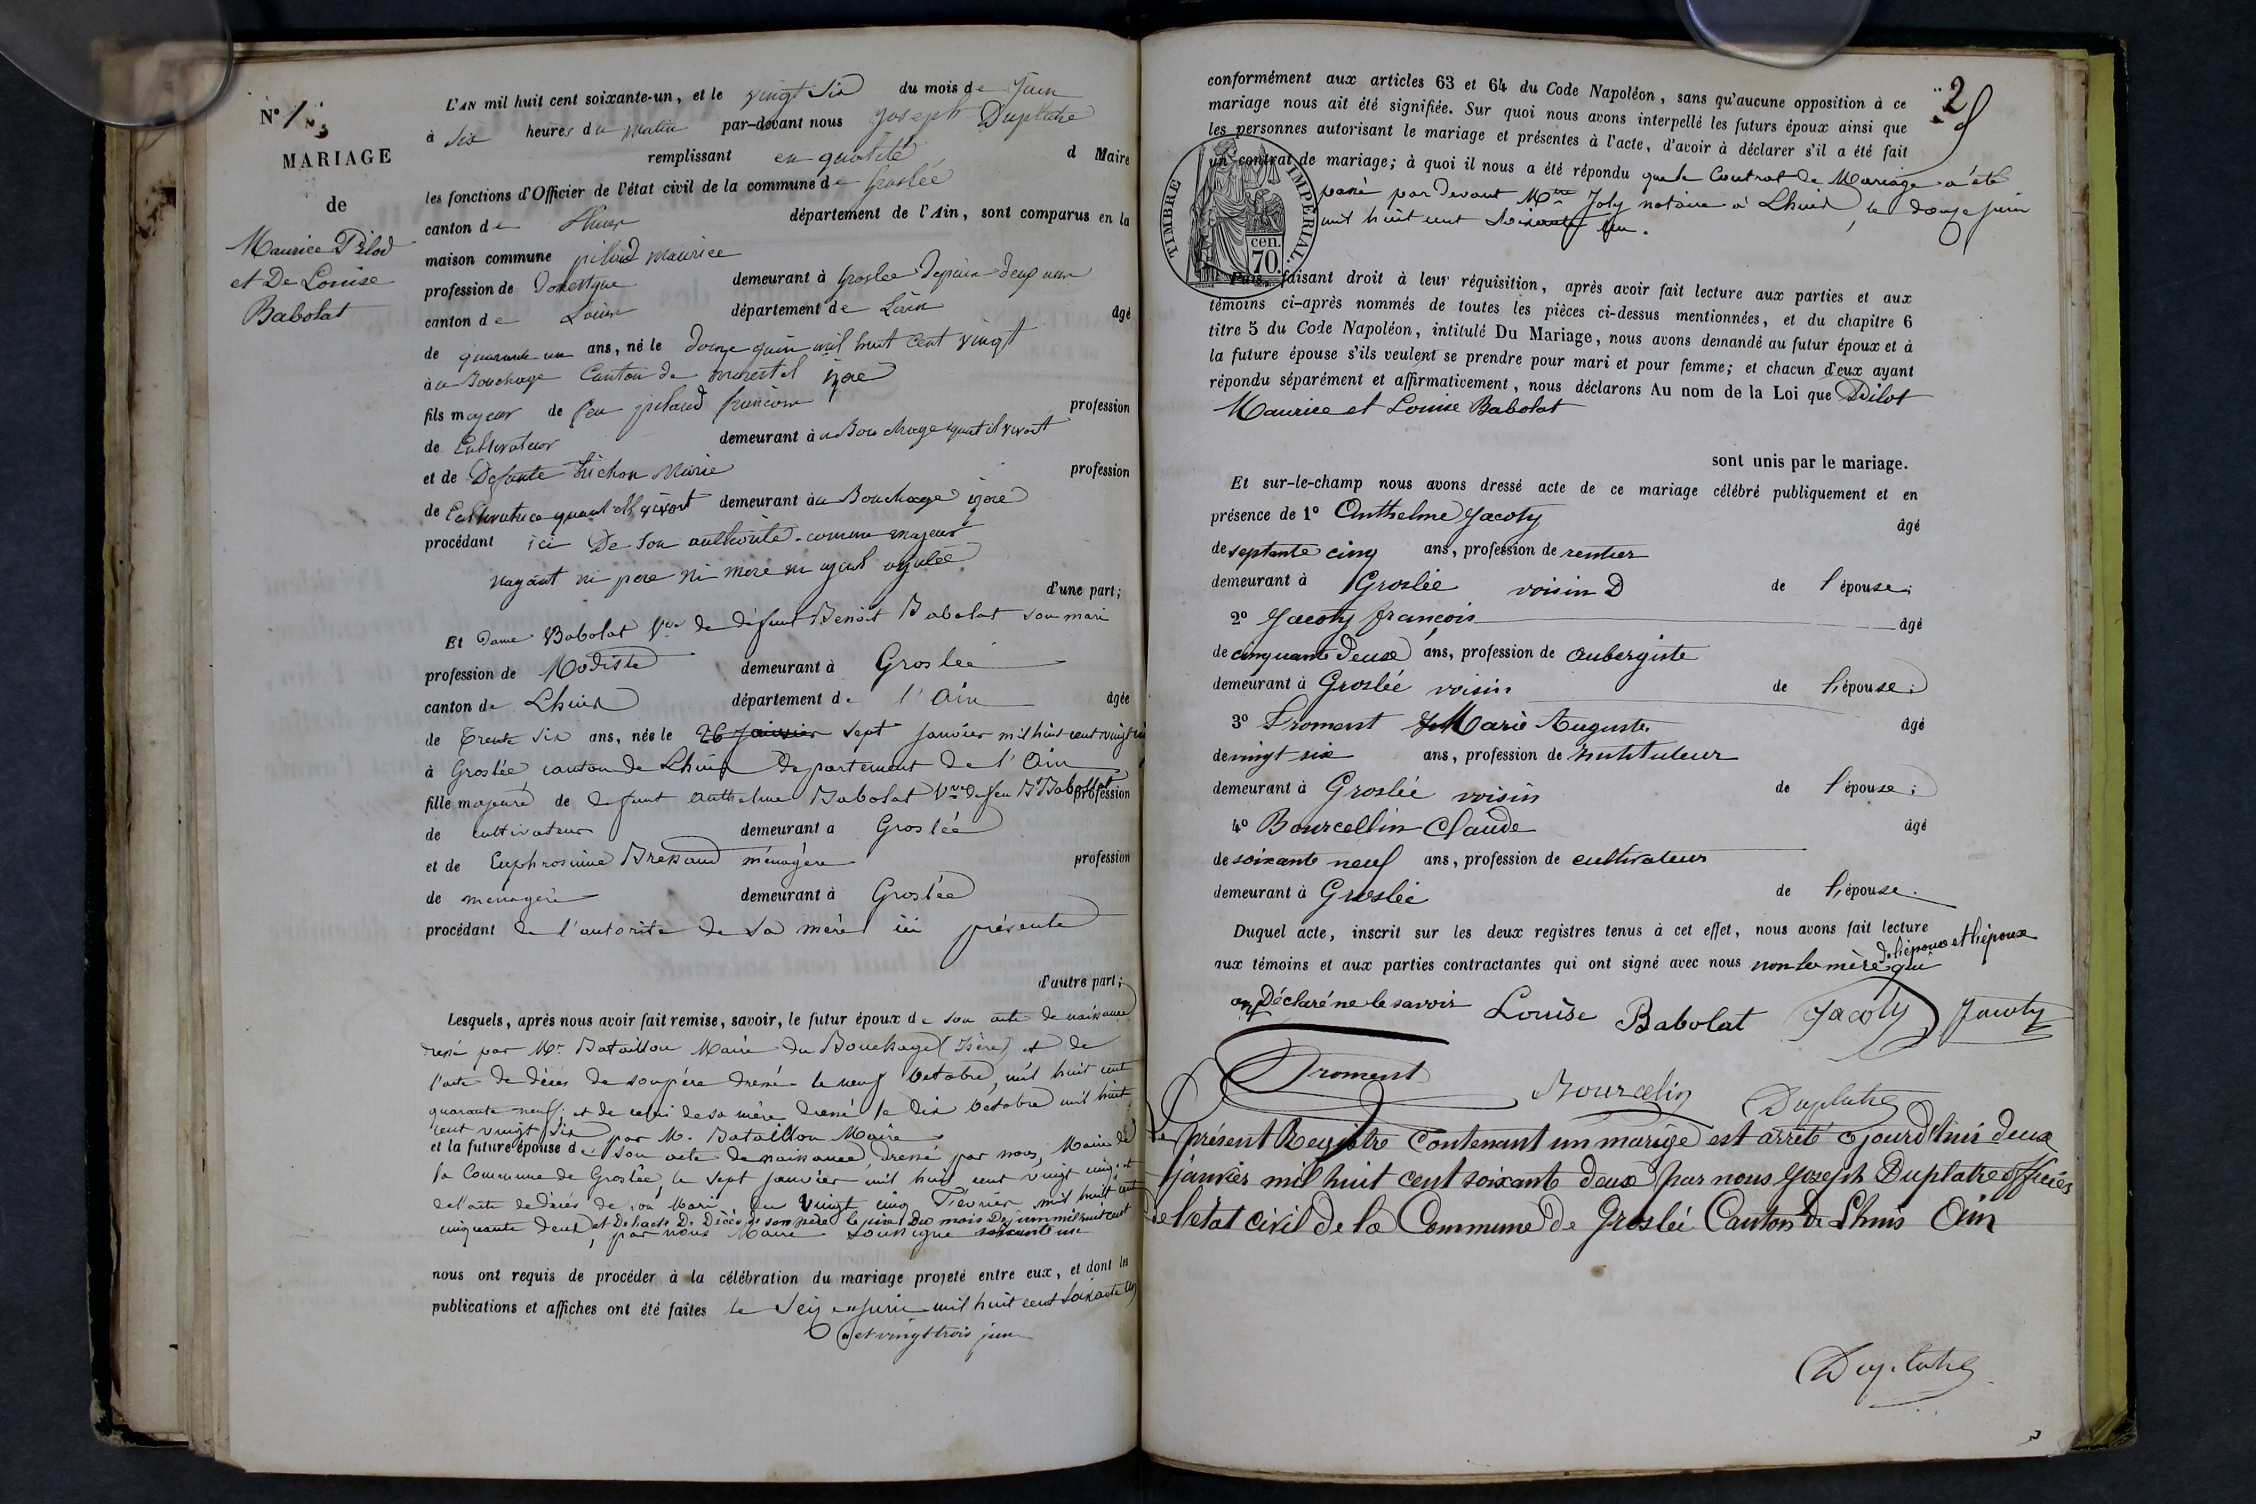 N° 1
MARIAGE
de
Maurice Pilod
et De Louise
Babolat
L'AN mil huit cent soixante-un, et le vingt Six du mois de Juin
à Six heures du Matin par-devant nous Joseph Duplatre
remplissant en qualité d Maire
les fonctions d'Officier de l'état civil de la commune de Groslée
canton de Lhuis département de l'Ain, sont comparus en la
maison commune pilaud Maurice
profession de Domestique demeurant à Groslée Depuis Deux ans
canton de département de Lain âgé
de quarante un ans, né le Douze juin mil huit cent vingt
au Bouchage Canton de morestel
fils majeur de feu pilaud françois profession
de Cultivateur demeurant au Bouchage quant il vivoit
et de Defunte Michon Marie profession
de Cultivatrice quant elle vivoit demeurant au Bouchage
procédant ici De Son authorité comme majeur
nayant ni pere ni mere ni
d'une part;
Et Dame Babolat Vve de défunt Benoit Babolat son mari
profession de Modiste demeurant à Groslée
canton de Lhuis département de l'Ain âgée
de Trente Six ans, née le 26 Janvier sept Janvier mil huit cent vingt
à Groslée canton de Lhuis département de l'Ain
fille majeure de défunt Anthelme Babolat Vve de feu Bt Babolat profession
de cultivateur demeurant à Groslée
et de Euphrosinne Bressand ménagère profession
de ménagère demeurant à Groslée
procédant de l'autorité de Sa mère ici présente
d'autre part;
Lesquels, après nous avoir fait remise, savoir, le futur époux de son acte de naissance
dressé par Mr Bataillon Maire du Bouchage (Isère) et de
l'acte de décès de son père dressé le neuf Octobre, mil huit cent
quarante neuf; et de celui de sa mère dressé le dix Octobre mil huit
cent vingt Six par M. Bataillon Maire
et la future épouse de son acte de naissance dressé par nous, Maire de
la Commune de Groslée, le sept Janvier mil huit cent vingt cinq et
de l'acte de décès de son Mari du vingt cinq Février mil huit cent
cinquante deux, et De l'acte De Décès de son père le Du mois De juin mil huit cent
par nous Maire Soussigné soixante un
nous ont requis de procéder à la célébration du mariage projeté entre eux, et dont les
publications et affiches ont été faites le Seize Juin mil huit cent Soixante un
et vingt trois juin
2
conformément aux articles 63 et 64 du Code Napoléon, sans qu'aucune opposition à ce
mariage nous ait été signifiée. Sur quoi nous avons interpellé les futurs époux ainsi que
les personnes autorisant le mariage et présentes à l'acte, d'avoir à déclarer s'il a été fait
un contrat de mariage; à quoi il nous a été répondu que le Contrat de Mariage a été
passé par devant Mtre Joly notaire à Lhuis, le douze juin
mil huit cent Soixante un.
TIMBRE IMPÉRIAL.
cen.
70.
Puis, faisant droit à leur réquisition, après avoir fait lecture aux parties et aux
témoins ci-après nommés de toutes les pièces ci-dessus mentionnées, et du chapitre 6
titre 5 du Code Napoléon, intitulé Du Mariage, nous avons demandé au futur époux et à
la future épouse s'ils veulent se prendre pour mari et pour femme; et chacun d'eux ayant
répondu séparément et affirmativement, nous déclarons Au nom de la Loi que Pilot
Maurice et Louise Babolat
sont unis par le mariage.
Et sur-le-champ nous avons dressé acte de ce mariage célébré publiquement et en
présence de 1° Anthelme Jacoty âgé
de septante cinq ans, profession de rentier
demeurant à Groslée voisin D de l'épouse;
2° Jacoty françois âgé
de cinquante Deux ans, profession de aubergiste
demeurant à Groslée voisin de l'épouse;
3° Froment Marie Auguste âgé
de vingt six ans, profession de instituteur
demeurant à Groslée voisin de l'épouse;
4° Bourcellin Claude âgé
de soixante neuf ans, profession de cultivateur
demeurant à Groslée de l'épouse.
Duquel acte, inscrit sur les deux registres tenus à cet effet, nous avons fait lecture
de l'épouse et l'époux
aux témoins et aux parties contractantes qui ont signé avec nous non la mère qui
ont Déclaré ne le savoir Louise Babolat Jacoty Jacoty
Froment Bourcelin Duplatre
Le présent Registre Contenant un mariage est arrêté ojourd'huis deux
janvier mil huit cent soixante deux par nous Joseph Duplatre officier
de l'état civil de la Commune de Groslée Canton de Lhuis Ain
Duplatre